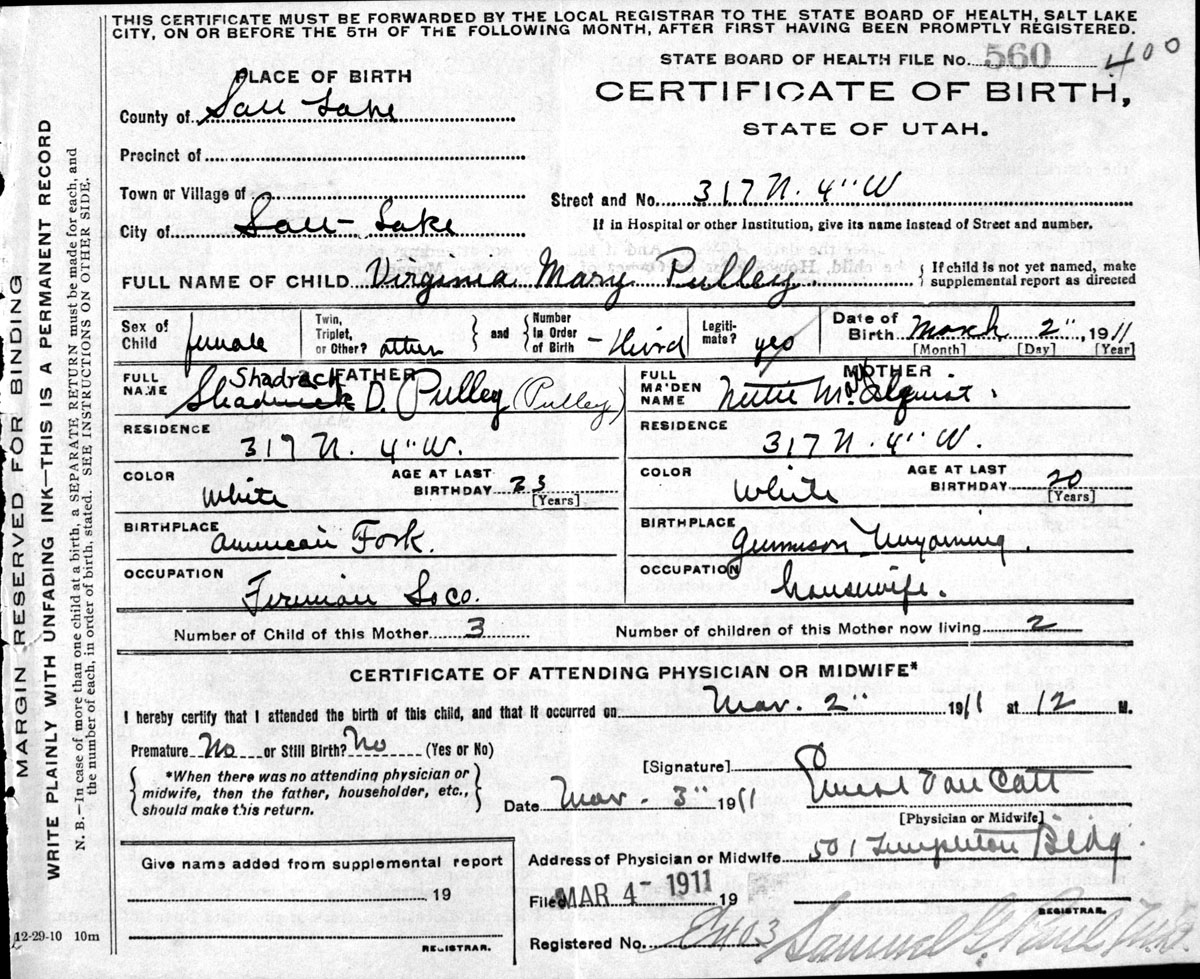 THIS CERTIFICATE MUST BE FORWARDED BY THE LOCAL REGISTRAR TO THE STATE BOARD OF HEALTH, SALT LAKE
CITY, ON OR BEFORE THE 5TH OF THE FOLLOWING MONTH, AFTER FIRST HAVING BEEN PROMPTLY REGISTERED.
STATE BOARD OF HEALTH FILE No. 560 400
PLACE OF BIRTH
CERTIFICATE OF BIRTH,
STATE OF UTAH.
County of Salt Lake
Precinct of
Town or Village of
Street and No. 317 N. 4" W
City of Salt Lake
If in Hospital or other Institution, give its name instead of Street and number.
FULL NAME OF CHILD Virginia Mary Pulley. { If child is not yet named, make
supplemental report as directed
Sex of Child female Twin, Triplet, or Other? other and Number In Order of Birth - third Legiti-mate? yes Date of Birth March 2", 1911
[Month] [Day] [Year]
FATHER
FULL NAME Shadrach D. Pulley (Pulley)
MOTHER
FULL MAIDEN NAME Nettie M.
RESIDENCE 317 N. 4" W.
RESIDENCE 317 N. 4" W.
COLOR White AGE AT LAST BIRTHDAY 23 [Years]
COLOR White AGE AT LAST BIRTHDAY 20 [Years]
BIRTHPLACE American Fork.
BIRTHPLACE Gunnison Wyoming.
OCCUPATION Co.
OCCUPATION housewife.
Number of Child of this Mother 3 Number of children of this Mother now living 2
CERTIFICATE OF ATTENDING PHYSICIAN OR MIDWIFE*
I hereby certify that I attended the birth of this child, and that it occurred on Mar. 2" 1911 at 12 M.
Premature No or Still Birth? No (Yes or No)
{ *When there was no attending physician or
midwife, then the father, householder, etc.,
should make this return. }
[Signature] Van Cott
Date Mar. 3" 1911
[Physician or Midwife]
Give name added from supplemental report
19
REGISTRAR.
Address of Physician or Midwife 501 Templeton Bldg.
Filed MAR 4 - 1911 19
REGISTRAR.
Registered No. Samuel G. Paul
12-29-10 10m
MARGIN RESERVED FOR BINDING
WRITE PLAINLY WITH UNFADING INK—THIS IS A PERMANENT RECORD
N. B.—In case of more than one child at a birth, a SEPARATE RETURN must be made for each, and
the number of each, in order of birth, stated. SEE INSTRUCTIONS ON OTHER SIDE.